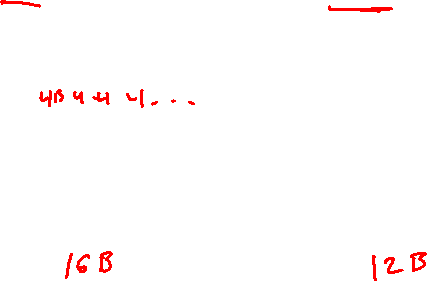 4B 4 4 4...
16B 12B